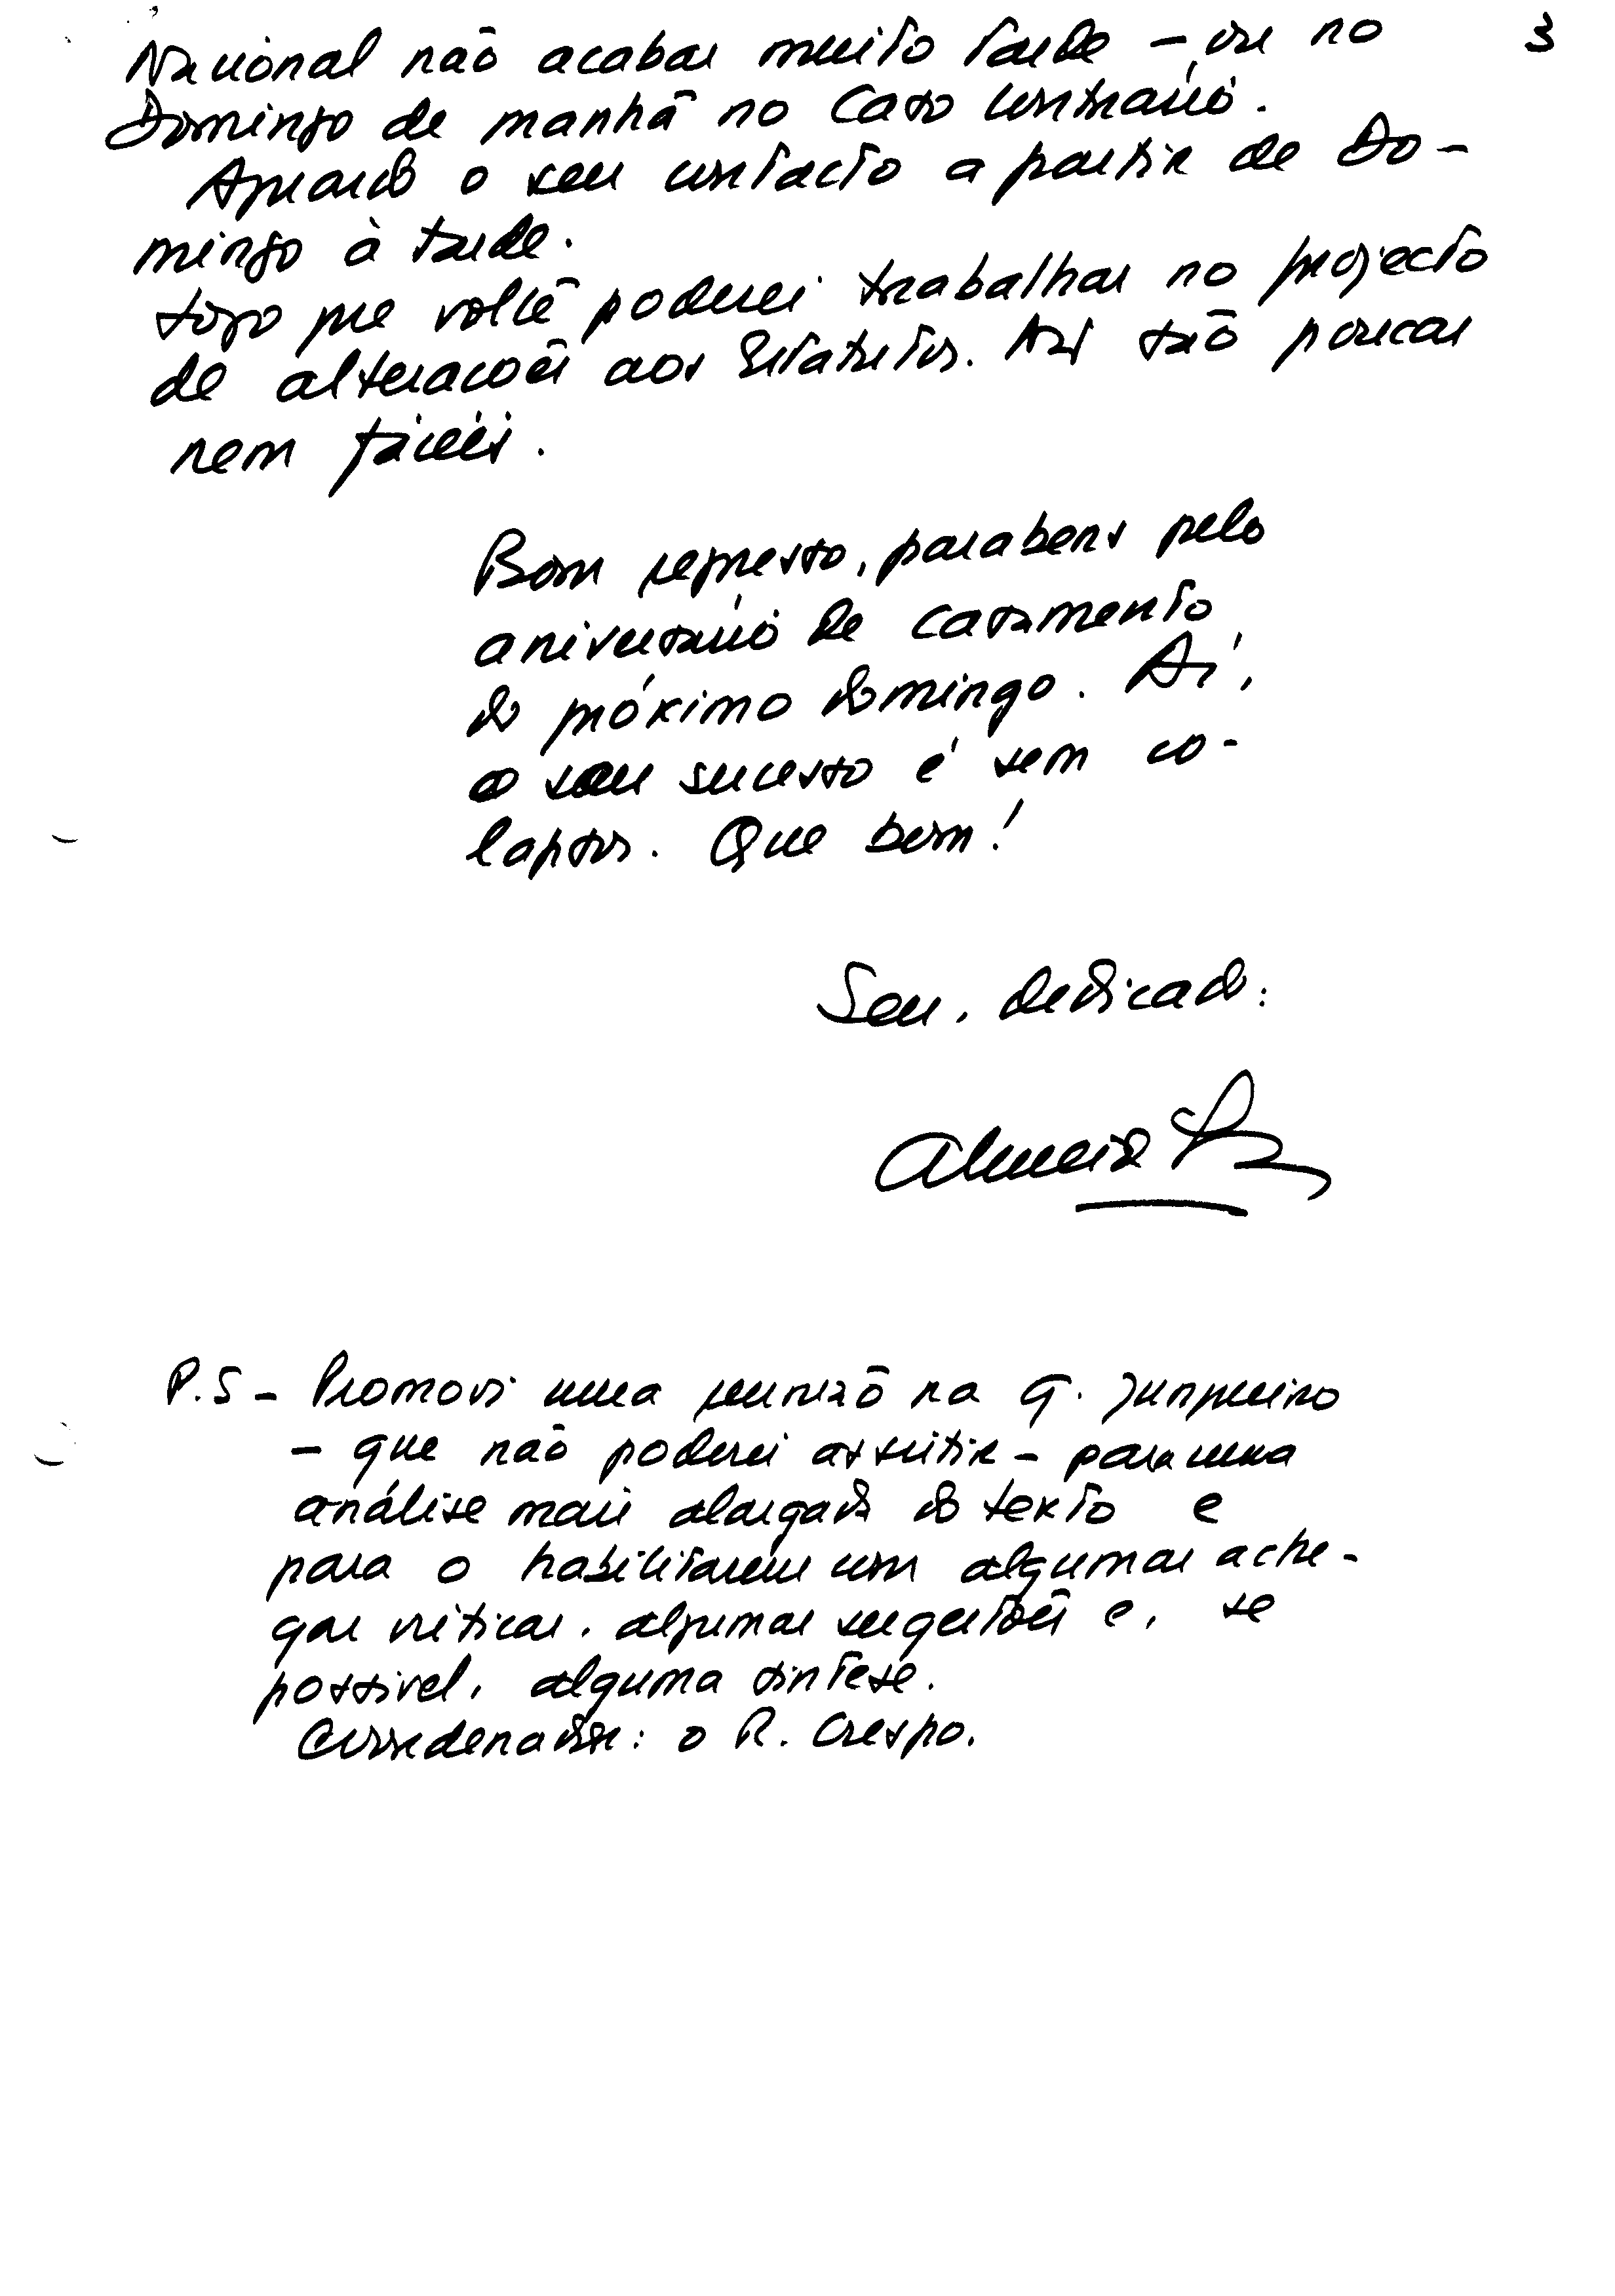 3
Nacional não acabar muito tarde – ou no
Domingo de manhã no caso contrário.
Aguardo o seu contacto a partir de Do-
mingo à tarde.
Logo que volte poderei trabalhar no projecto
de alterações aos Estatutos. Não são poucas
nem fáceis.
Bom regresso, parabens pelo
aniversário de casamento
do próximo domingo. Aí,
o seu sucesso é sem co-
lapsos. Que bom!
Seu, dedicado:
Almeida
P.S – Promovi uma reunião na G. Junqueiro
– que não poderei assistir – para uma
análise mais alargada do texto e
para o habilitarem com algumas ache-
gas críticas, algumas sugestões e, se
possivel, alguma síntese.
Coordenador: o R. Crespo.